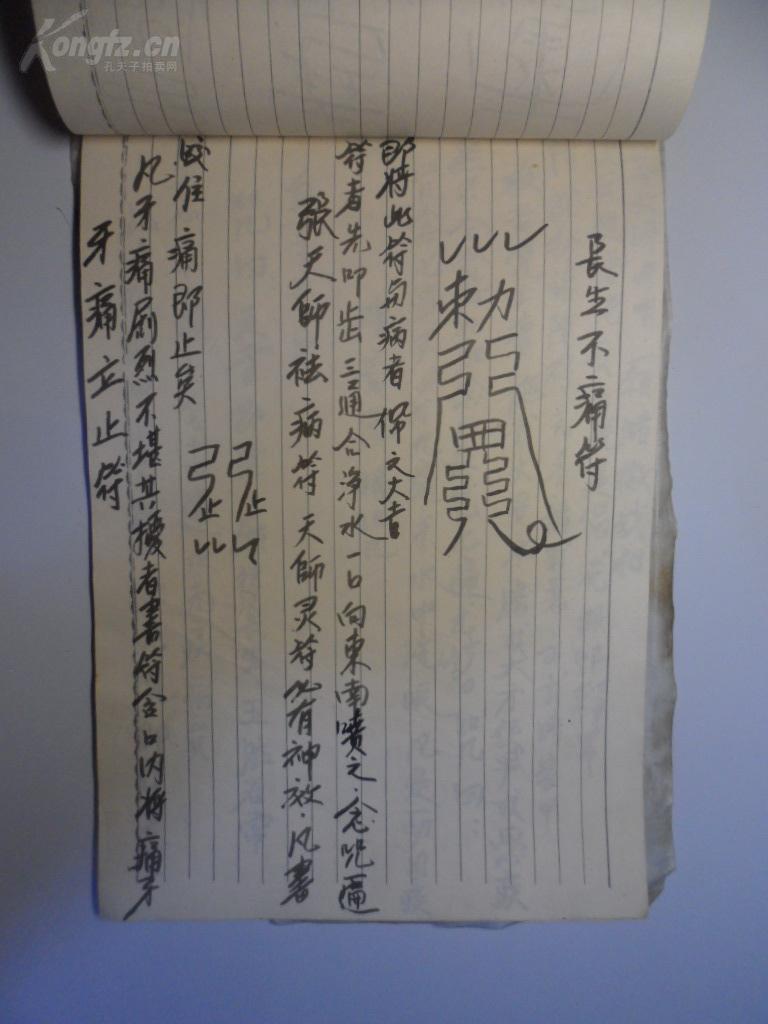 Kongfz.cn
孔夫子拍卖网
牙痛立止符
凡牙痛剧烈不堪其擾者書符含口内将痛牙
咬住痛即止矣
張天師祛病符 天師灵符 有神效.凡書
符者先叩齿三通含净水一口向東南噴之.念咒一遍
即将此符与病者 之大吉
勅
長生不痛符